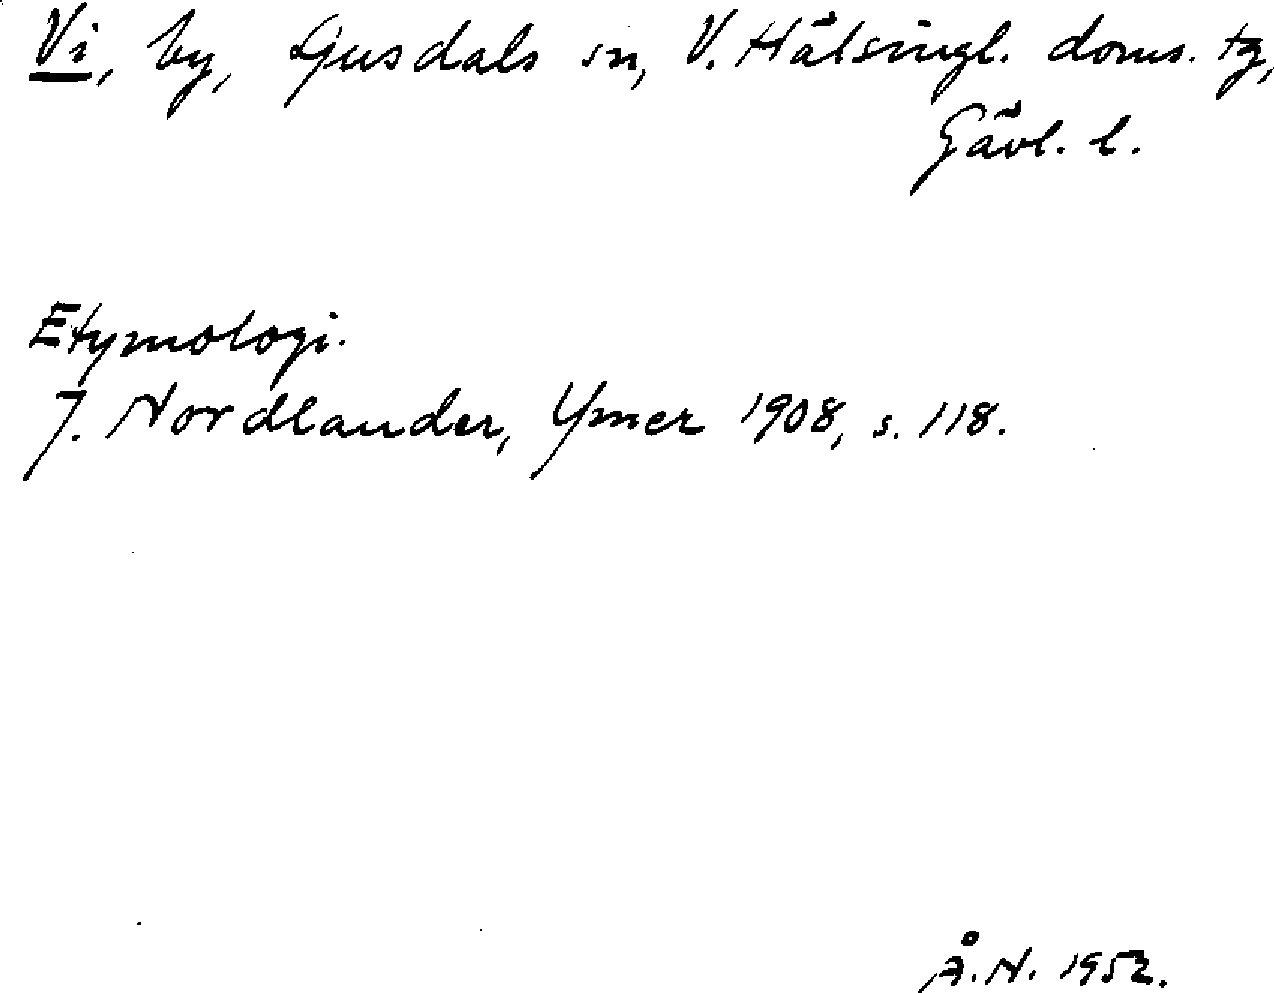 Vi, by, Ljusdals sn, V. Hälsingl. doms. tg,
Gävl. l.
Etymologi.
J. Nordlander, Ymer 1908, s. 118.
Å.N. 1952.